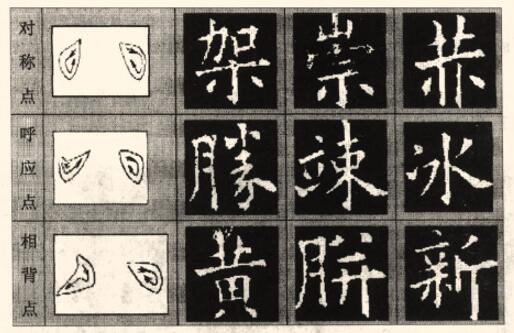 对称点 架 崇
呼应点 勝 竦 冰
相背点 黄 胼 新